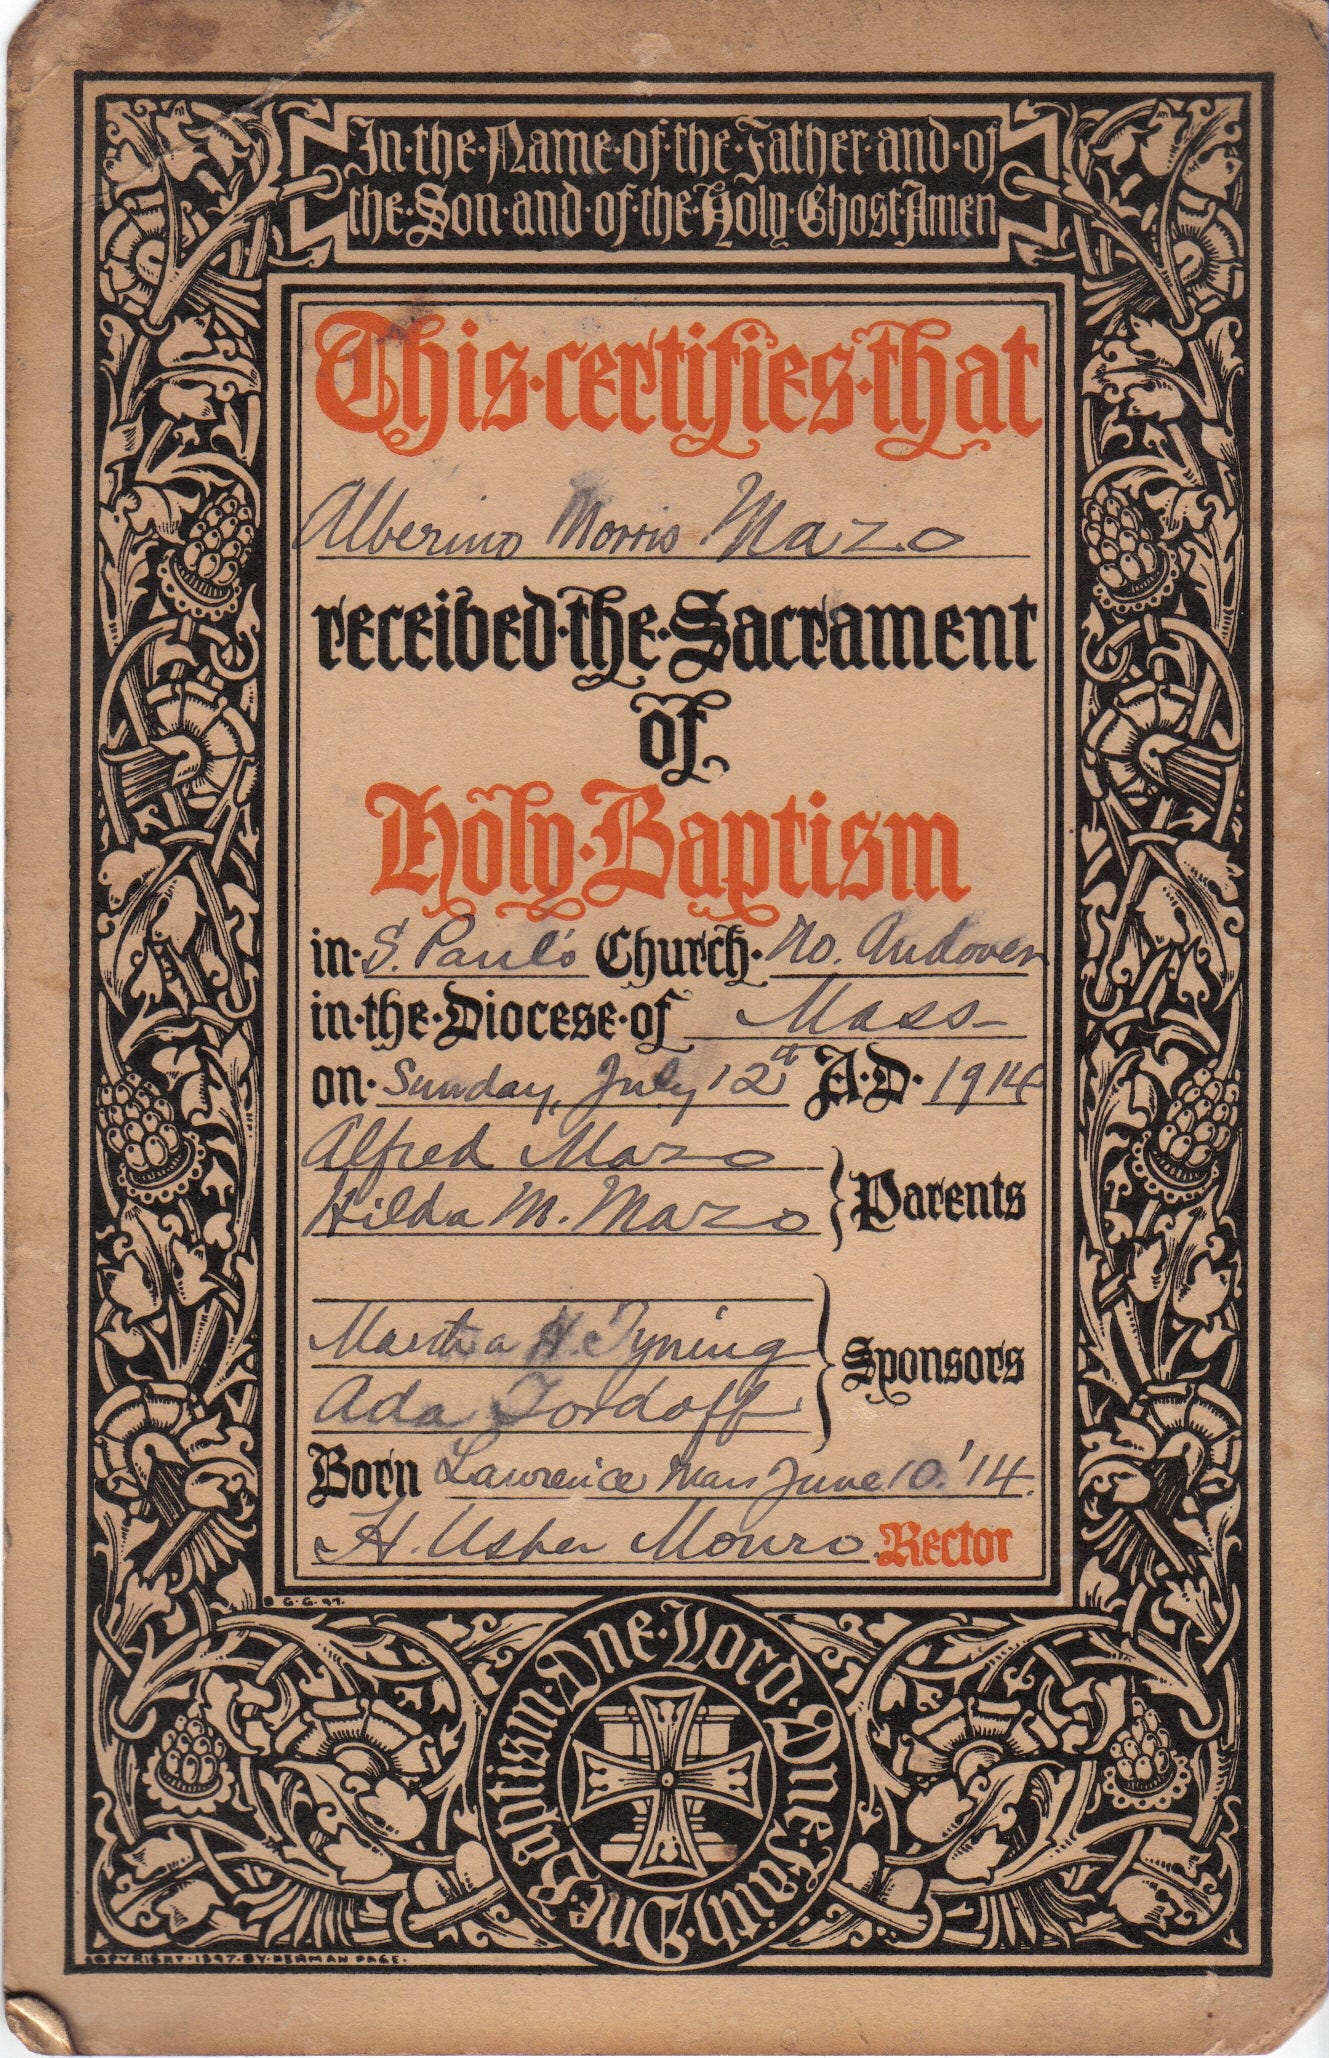 In·the·Name·of·the·Father·and·of
the·Son·and·of·the·Holy·Ghost·Amen
This·certifies·that
Alberino Morris Mazo
received·the·Sacrament
of
Holy·Baptism
in·S. Paul's Church·No. Andover
in·the·Diocese·of Mass-
on·Sunday, July 12th A·D·1914
Alfred Mazo
Hilda M. Mazo } Parents
Martha H. Tyning
Ada Tordoff } Sponsors
Born Lawrence Mass June 10. '14.
H. Usher Monro Rector
B G·G·97·
One·Lord·One·Faith·One·Baptism·
COPYRIGHT·1897·BY·HERMAN PAGE.